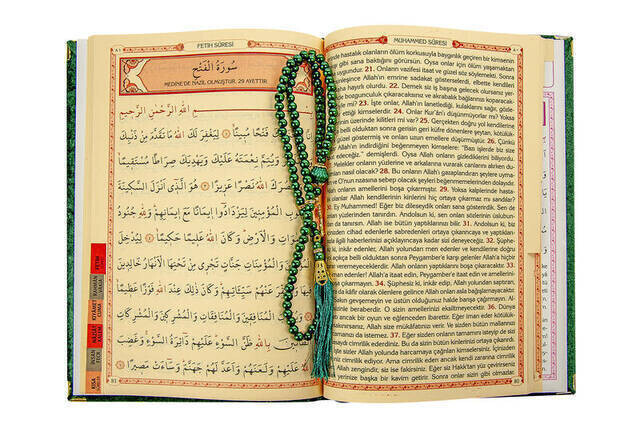 FETİH SÛRESİ
سُورَةُ الْفَتْحِ
MEDİNE'DE NAZİL OLMUŞTUR. 29 AYETTİR.
اللهِ الرَّحْمٰنِ الرَّحِيمِ
فَتْحًا مُبِينًا ۝ لِيَغْفِرَ لَكَ اللهُ مَا تَقَدَّمَ مِنْ ذَنْبِكَ
وَيُتِمَّ نِعْمَتَهُ عَلَيْكَ وَيَهْدِيَكَ صِرَاطًا مُسْتَقِيمًا
اللهُ نَصْرًا عَزِيزًا ۝ هُوَ الَّذِي أَنْزَلَ السَّكِينَةَ
الْمُؤْمِنِينَ لِيَزْدَادُوا إِيمَانًا مَعَ إِيمَانِهِمْ وَلِلّٰهِ جُنُودُ
وَالْأَرْضِ وَكَانَ اللهُ عَلِيمًا حَكِيمًا ۝ لِيُدْخِلَ
وَالْمُؤْمِنَاتِ جَنَّاتٍ تَجْرِي مِنْ تَحْتِهَا الْأَنْهَارُ خَالِدِينَ
عَنْهُمْ سَيِّئَاتِهِمْ وَكَانَ ذٰلِكَ عِنْدَ اللهِ فَوْزًا عَظِيمًا
الْمُنَافِقِينَ وَالْمُنَافِقَاتِ وَالْمُشْرِكِينَ وَالْمُشْرِكَاتِ
بِاللهِ ظَنَّ السَّوْءِ عَلَيْهِمْ دَائِرَةُ السَّوْءِ وَغَضِبَ
عَلَيْهِمْ وَلَعَنَهُمْ وَأَعَدَّ لَهُمْ جَهَنَّمَ وَسَاءَتْ مَصِيرًا
81
MUHAMMED SÛRESİ
hastalık olanların ölüm korkusuyla baygınlık geçiren bir kimsenin
gibi sana baktığını görürsün. Oysa onlar için ölüm yaşamaktan
uygundur. 21. Onların vazifesi itaat ve güzel söz söylemekti. Sonra
kesinleşince Allah'ın emrine sadakat gösterselerdi, elbette kendileri
hayırlı olurdu. 22. Demek siz iş başına gelecek olursanız yeryüzünde
bozgunculuk çıkaracaksınız ve akrabalık bağlarınızı koparacak-
mı? 23. İşte onlar, Allah'ın lanetlediği, kulaklarını sağır, gözle-
kimselerdir. 24. Onlar Kur'an'ı düşünmüyorlar mı? Yoksa
üzerinde kilitleri mi var? 25. Gerçekten doğru yol kendilerine
belli olduktan sonra gerisin geri küfre dönenlere şeytan, kötülük-
güzel göstermiş ve onları uzun emellere düşürmüştür. 26. Çünkü
Allah'ın indirdiğini beğenmeyen kimselere: "Bazı işlerde bir size
edeceğiz." demişlerdi. Oysa Allah onların gizlediklerini biliyordu.
Melekler onların yüzlerine ve arkalarına vurarak canlarını alırken du-
nasıl olacak? 28. Bu onların Allah'ı gazaplandıran şeylere uyma-
O'nun rızasına sebep olacak şeyleri beğenmemelerinden dolayıdır.
onların amellerini boşa çıkarmıştır. 29. Yoksa kalplerinde hasta-
olanlar Allah kendilerinin kinlerini hiç ortaya çıkarmaz mı sandılar?
Ey Muhammed! Eğer biz dileseydik onları sana gösterirdik. Sen de
yüzlerinden tanırdın. Andolsun ki, sen onları sözlerinin üslubun-
tanırsın. Allah bütün yaptıklarınızı bilir. 31. Andolsun ki, biz
cihad edenlerle sabredenleri ortaya çıkarıncaya ve yaptıkları-
ilgili haberlerinizi açıklayıncaya kadar sizi deneyeceğiz. 32. Şüphe-
inkâr edenler, Allah yolundan men edenler ve kendilerine doğru
açıkça belli olduktan sonra Peygamber'e karşı gelenler Allah'a hiçbir
Allah onların yaptıklarını boşa çıkaracaktır. 33.
iman edenler! Allah'a itaat edin, Peygamber'e itaat edin ve amellerini
34. Şüphesiz ki, inkâr edip, Allah yolundan saptıran,
da kâfir olarak ölenlere gelince Allah onları asla bağışlamayacaktır.
gevşemeyin ve üstün olduğunuz halde barışa çağırmayın. Al-
beraberdir. O sizin amellerinizi eksiltmeyecektir. 36. Dünya
ancak bir oyun ve eğlenceden ibarettir. Eğer iman eder kötülük-
Allah size mükâfatınızı verir. Ve sizden bütün mallarınızı
da istemez. 37. Eğer sizden onların tamamını isteyip de sizi
cimrilik ederdiniz. Bu da sizin bütün kinlerinizi ortaya çıkarırdı.
Allah yolunda harcamaya çağrılan kimselersiniz. İçinizden
cimrilik ediyor. Ama cimrilik eden ancak kendi zararına cimrilik
Allah zengindir, siz ise fakirsiniz. Eğer siz Hakk'tan yüz çevirirse-
yerinize başka bir kavim getirir. Sonra onlar sizin gibi olmazlar.
80